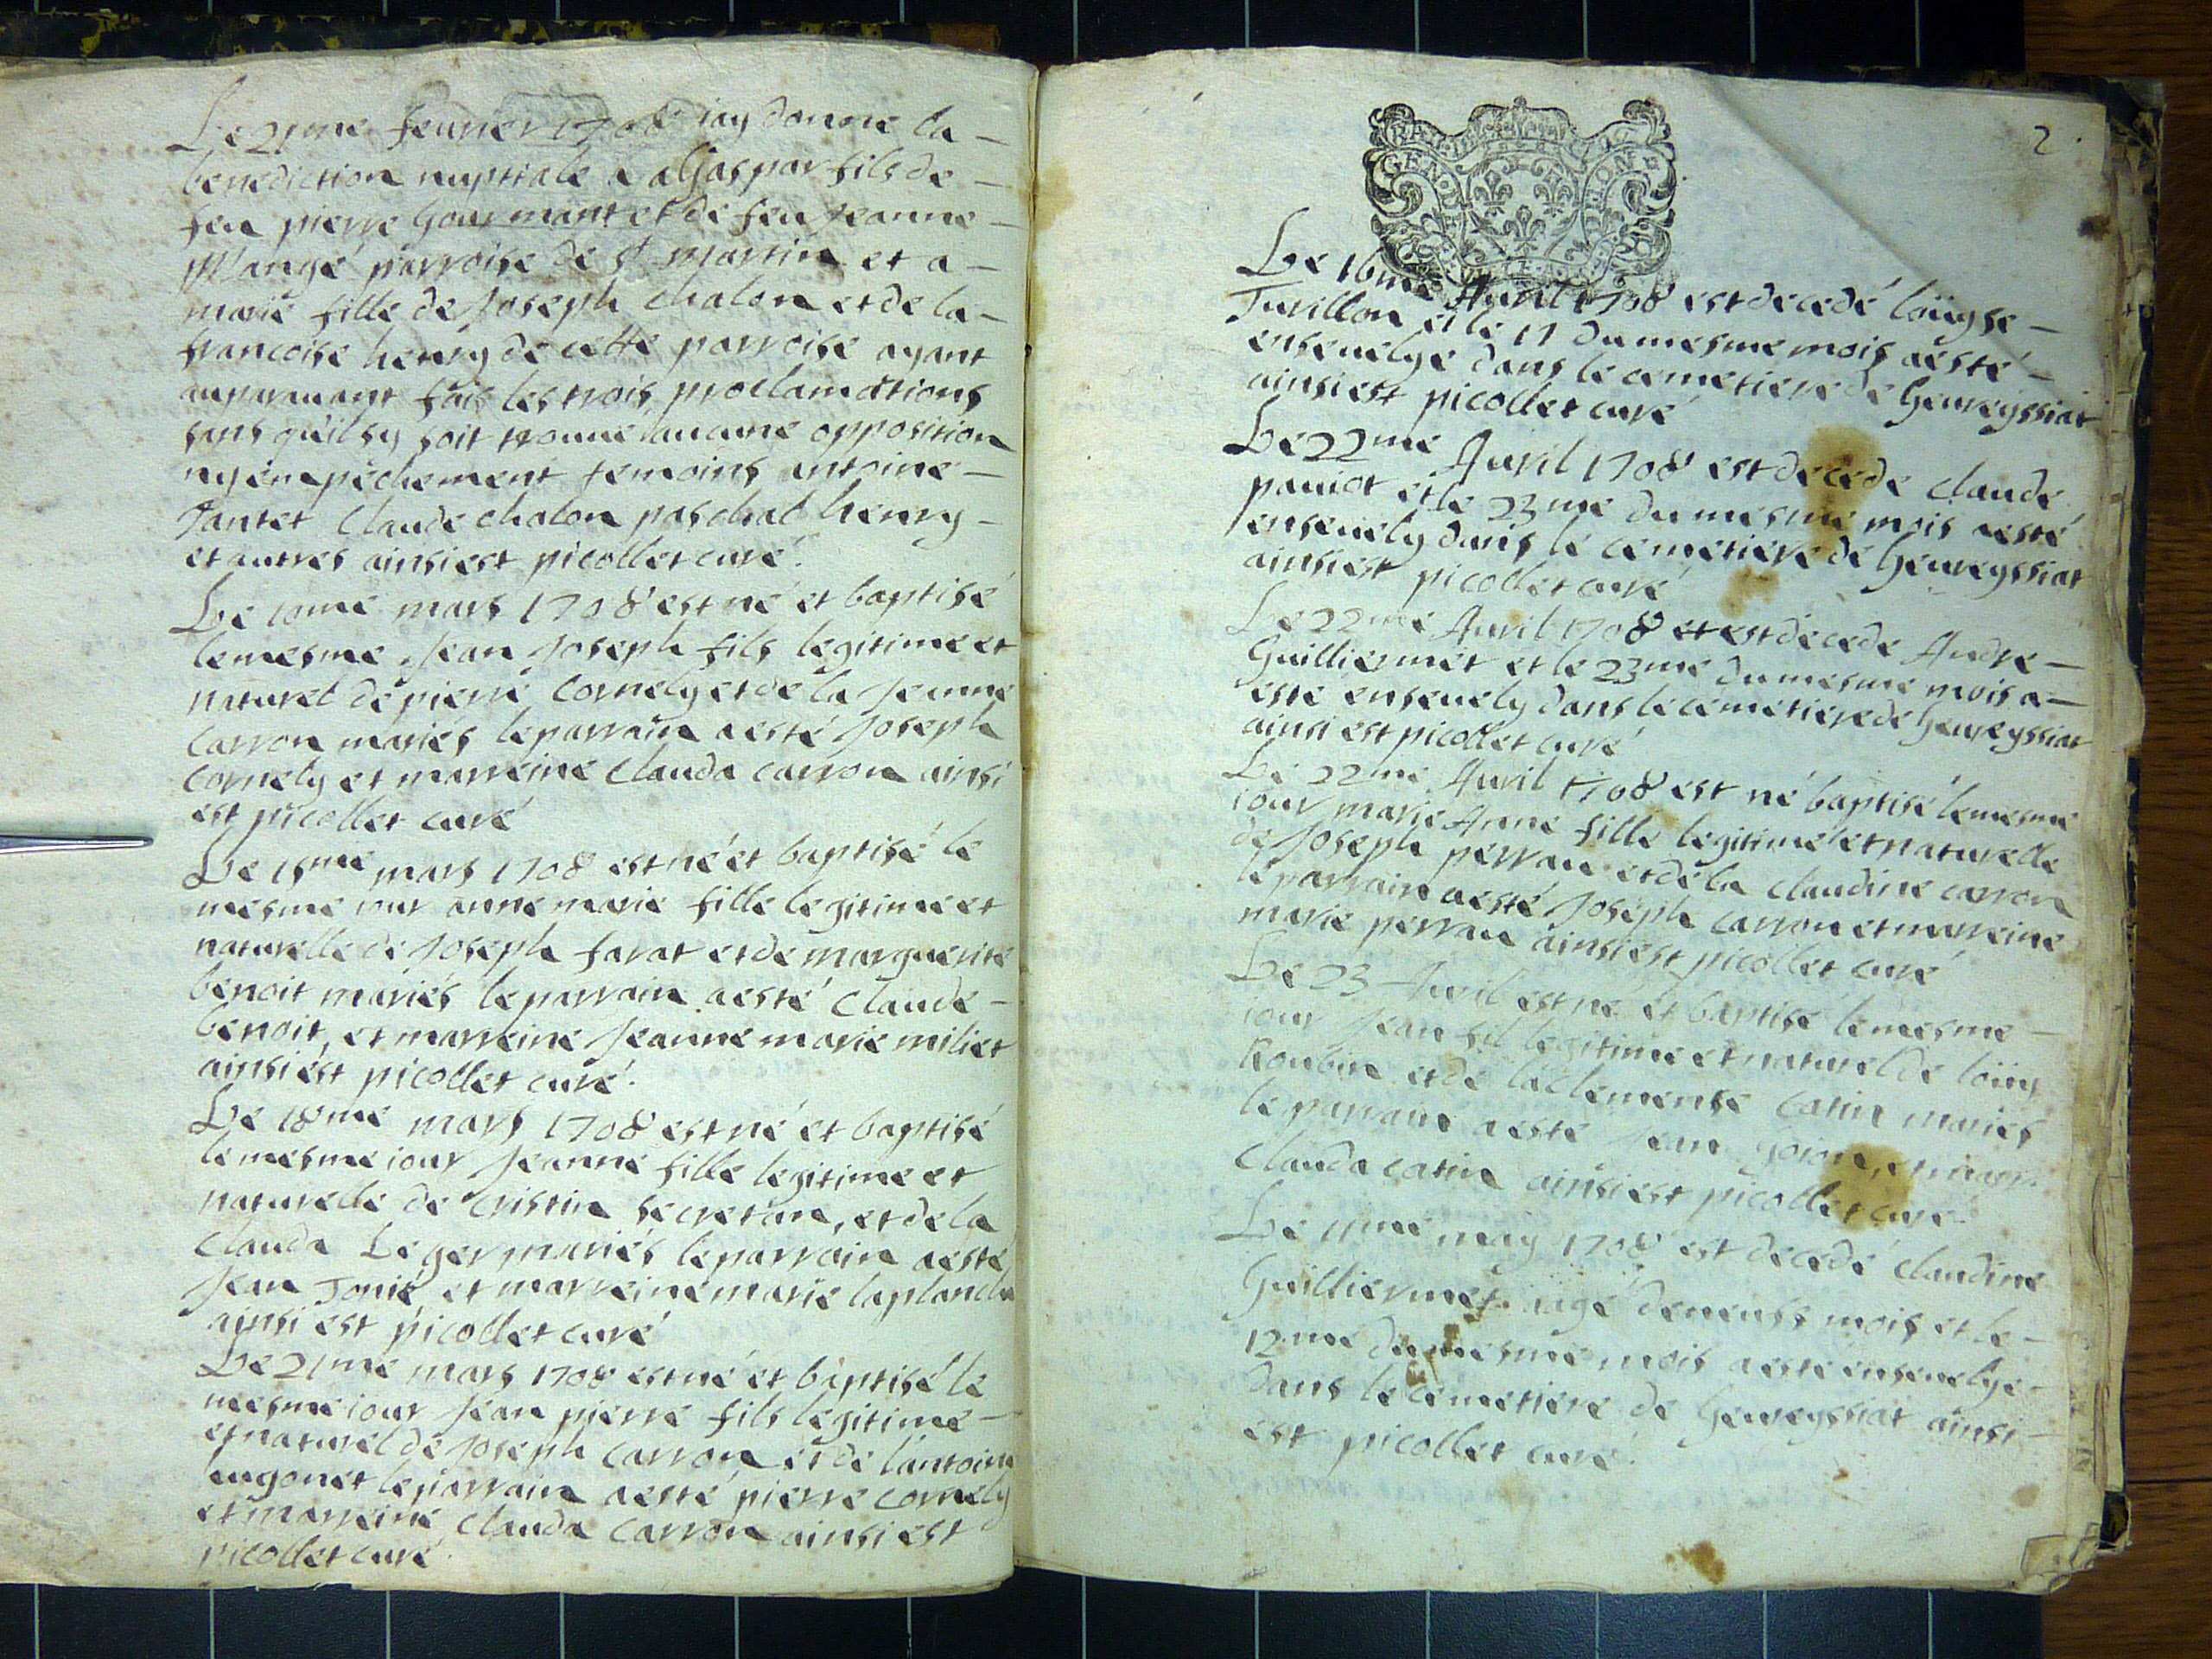 Le 21me feurier 1708 iay donné la
benediction nuptiale a Gaspar fils de
feu pierre Gourmant et de feu Jeanne
Mangé parroise de st martin et a
marie fille de Joseph chalon et de la
francoise henry de cette parroise ayant
auparauant fait les trois proclamations
sans quil sy soit trouué aucune opposition
ny empéchement temoins antoine
Jantet Claude chalon paschal henry
et autres ainsi est picollet curé
Le 10me mars 1708 est né et baptisé
le mesme Jean Joseph fils legitime et
naturel de pierre Cornely et de la Jeanne
Carron mariés le parrain a esté Joseph
Cornely et marreine Clauda Carron ainsi
est picollet curé
Le 15me mars 1708 est né et baptisé le
mesme iour anne marie fille legitime et
naturelle de Joseph farat et de marguerite
benoit mariés le parrain a esté Claude
benoit, et marreine Jeanne marie miliet
ainsi est picollet curé
Le 18me mars 1708 est né et baptisé
le mesme iour Jeanne fille legitime et
naturelle de Cristin secretan, et de la
Clauda Leger mariés le parrain a esté
Jean et marreine marie laplanche
ainsi est picollet curé
Le 21me mars 1708 est né et baptisé le
mesme iour Jean pierre fils legitime
et naturel de Joseph Carron et de l'antoine
hugonet le parrain a esté pierre Cornely
et marreine Clauda Carron ainsi est
picollet curé
2
GENERALITE
Le 16me Auril 1708 est decedé loüyse
Tuvillon et le 17 du mesme mois a esté
enseuelye dans le cemetiere de Geureyssiat
ainsi est picollet curé
Le 22me Auril 1708 est decede claude
pauiot et le 23me du mesme mois a esté
enseuely dans le cemetiere de Geureyssiat
ainsi est picollet curé
Le 22me Auril 1708 et est decede Andre
Guilliermet et le 23me du mesme mois a
esté enseuely dans le cemetiere de Geureyssiat
ainsi est picollet curé
Le 22me Auril 1708 est né baptisé le mesme
iour marie Anne fille legitime et naturelle
de Joseph perrau et de la Claudine Carron
le parrain a esté Joseph Carron et marreine
marie perrau ainsi est picollet curé
Le 23 Auril est né et baptisé le mesme
iour Jean fil legitime et naturel de loüys
Roubin et de la clemense Catin mariés
le parrain a esté Jean Goion, et marr.
Clauda Catin ainsi est picollet curé
Le 11me may 1708 est decedé Claudine
Guilliermet agé de neufs mois et le
12me du mesme mois a esté enseuelye
dans le cemetiere de Geureyssiat ainsi
est picollet curé